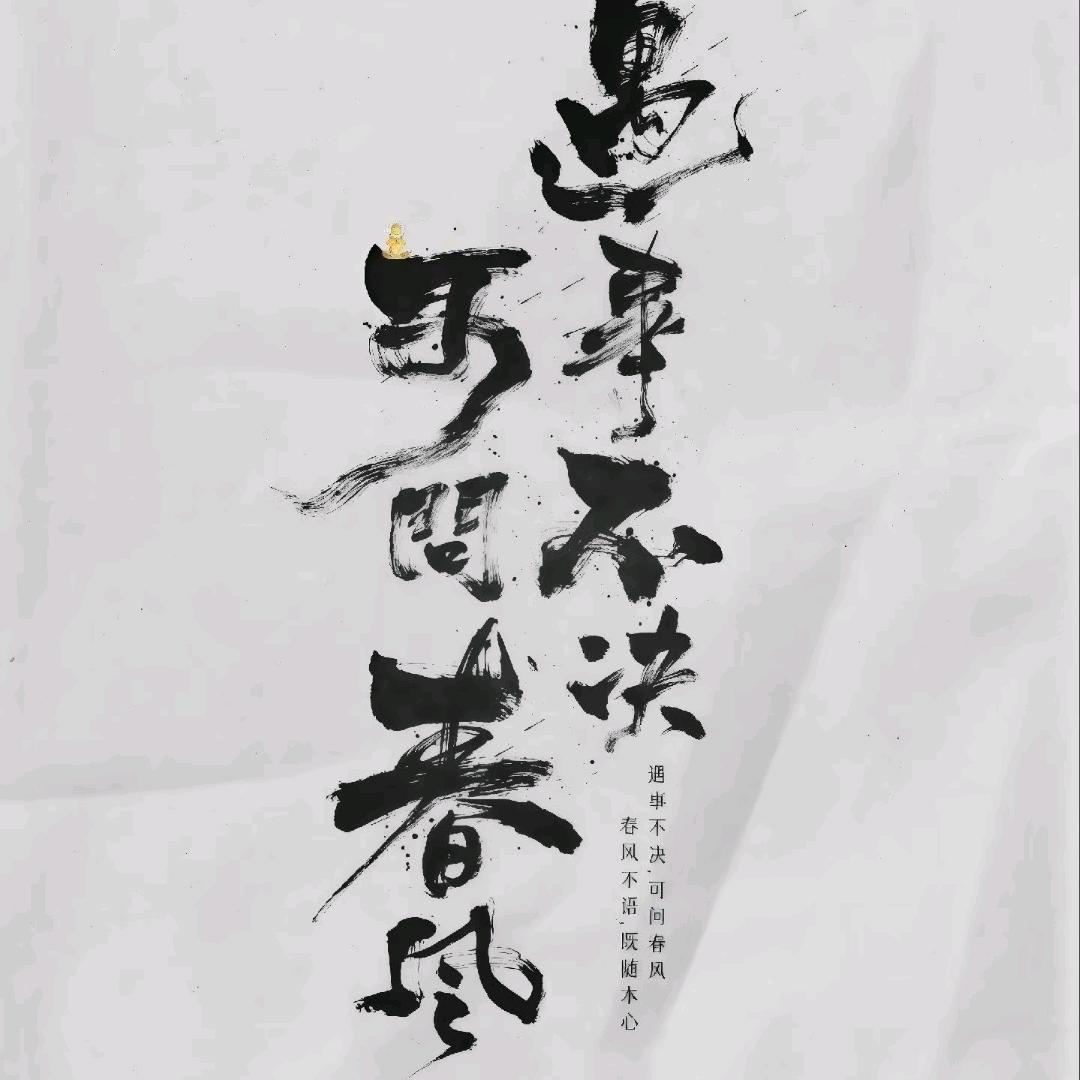 遇事不决
可问春风
遇事不决,可问春风
春风不语,既随本心